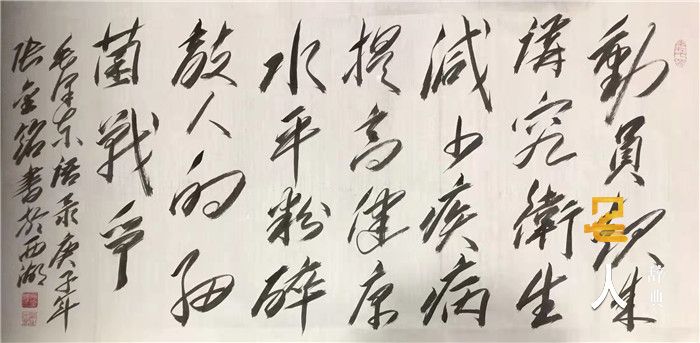 動員起来
講究衛生
減少疾病
提高健康
水平粉碎
敵人的細
菌戰爭
毛泽东语录庚子年
书於西湖
人
辞典